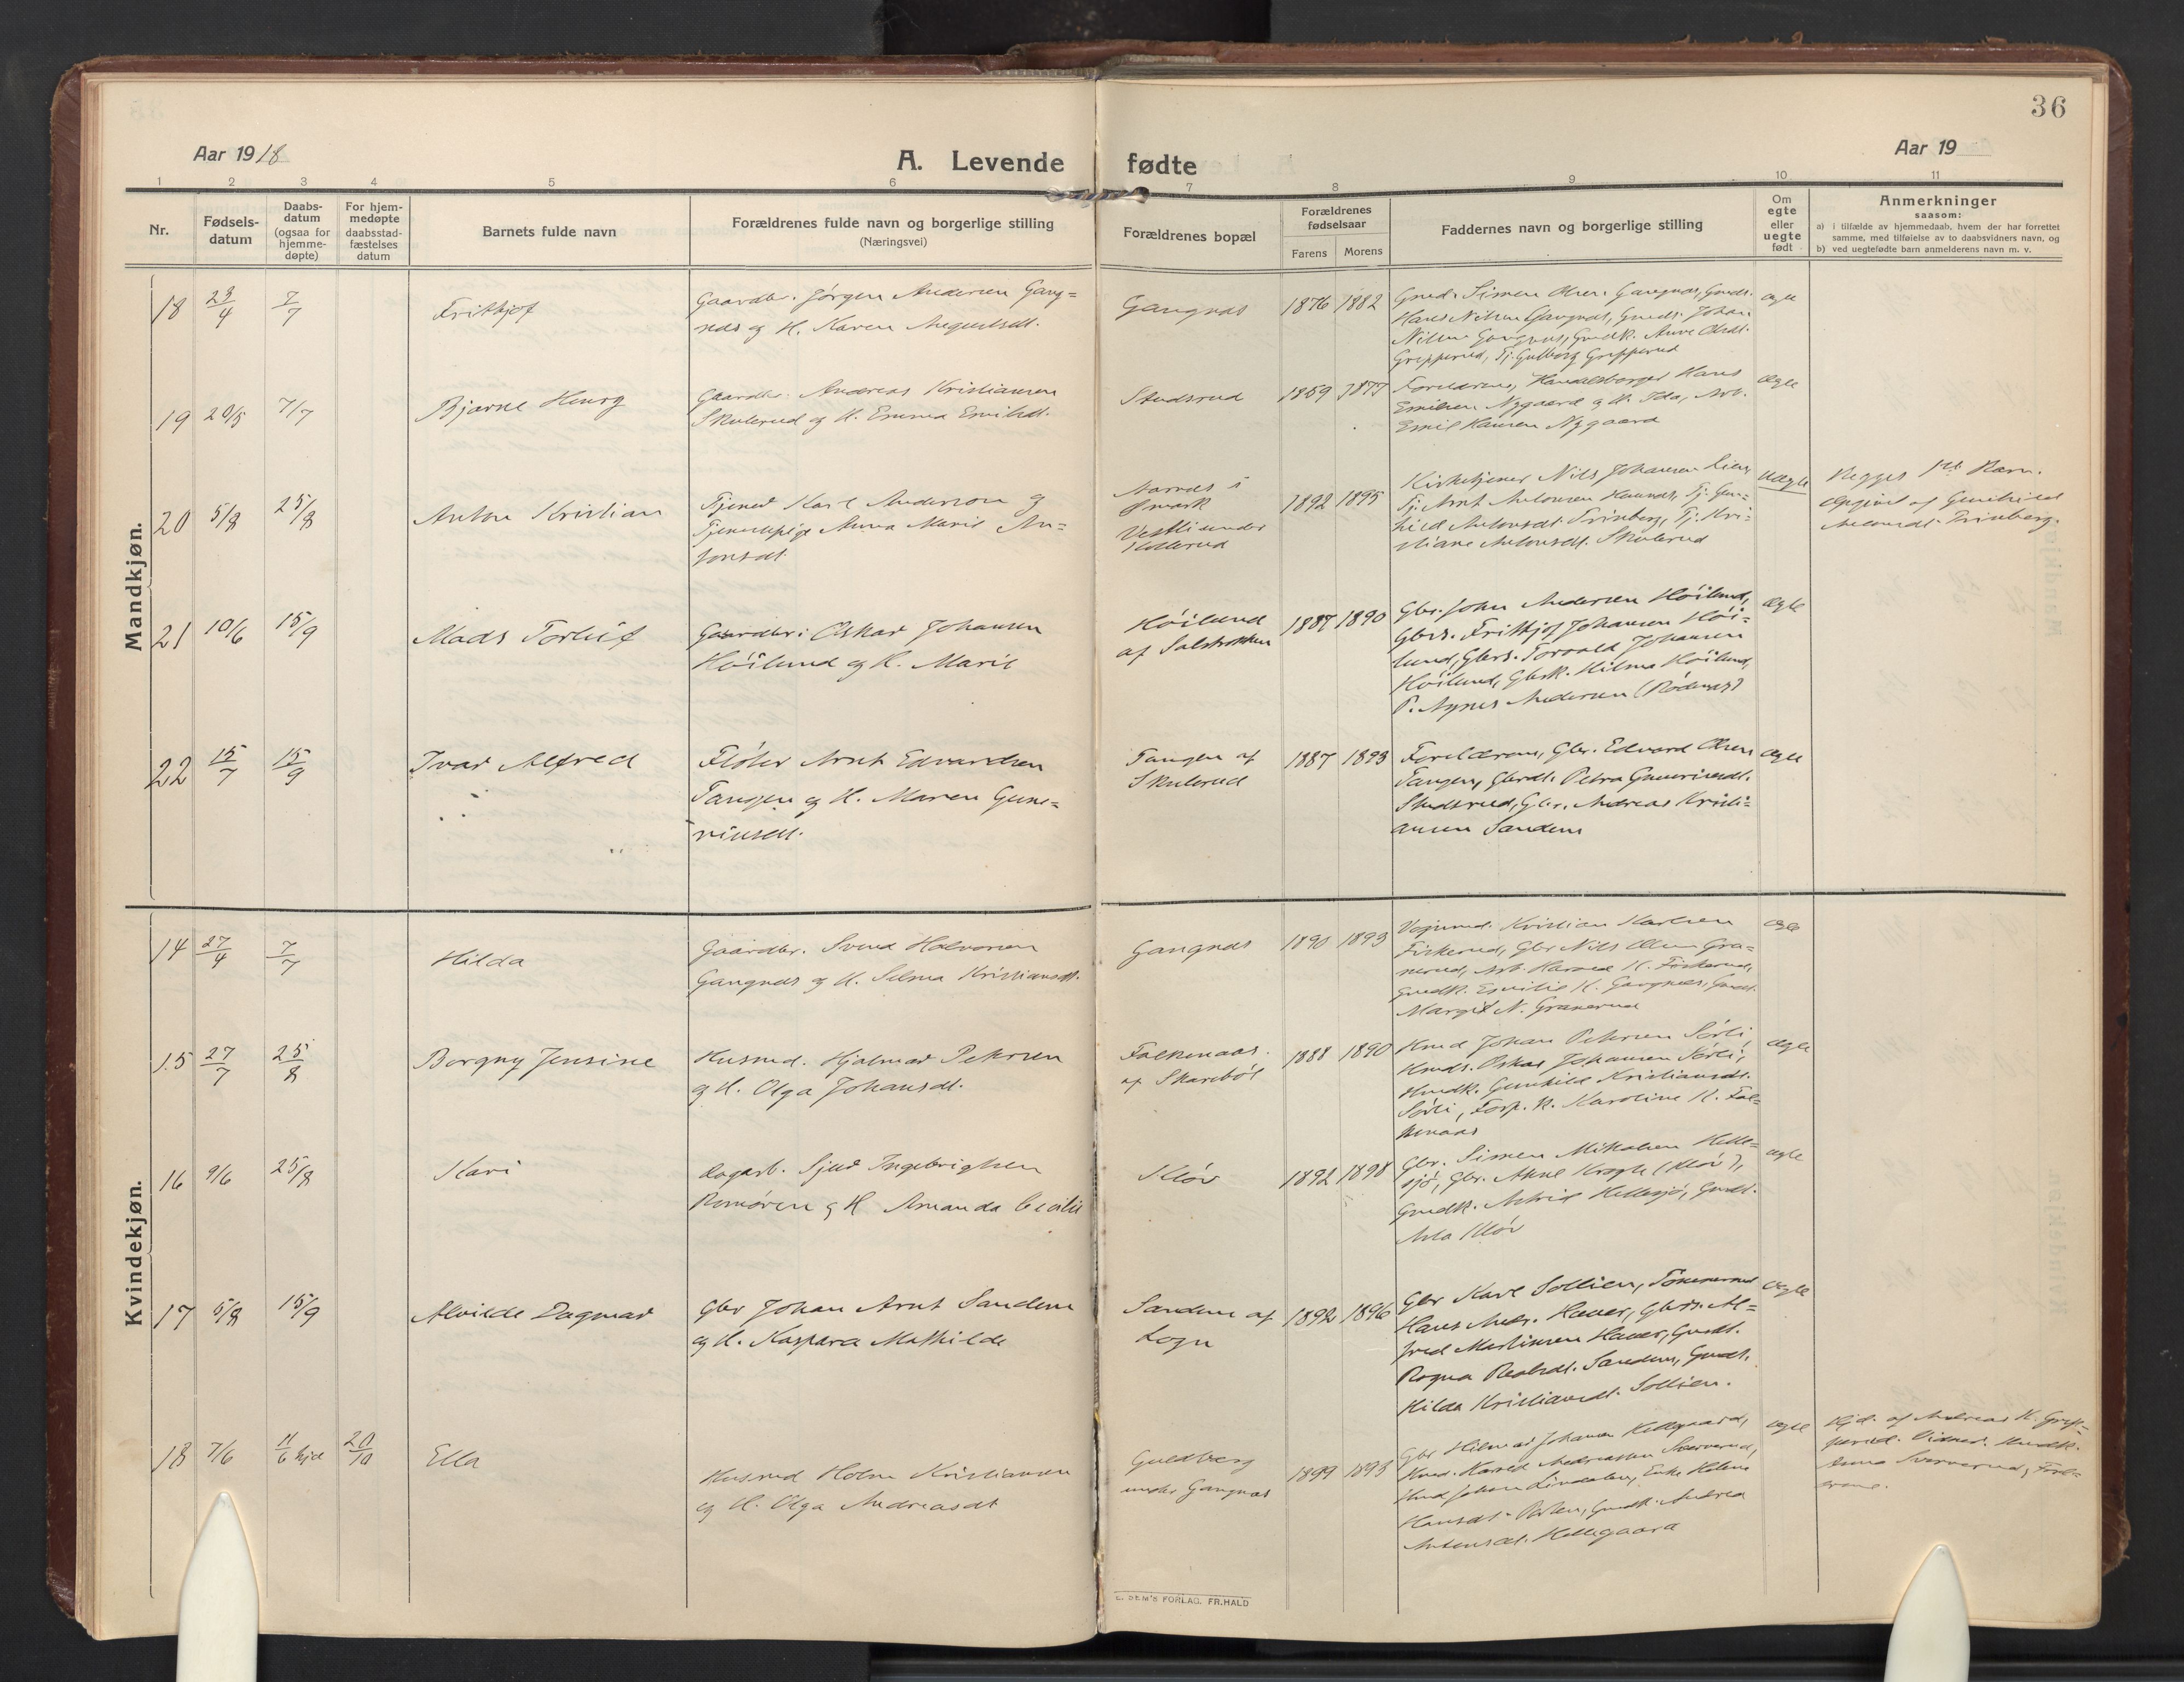 36
Aar 1918
A. Levende fødte
Aar 19
1 2 3 4 5 6 7 8 9 10 11
Nr.
Fødsels-
datum
Daabs-
datum
(ogsaa for
hjemme-
døpte)
For hjem-
medøpte
daabsstad-
fæstelses
datum
Barnets fulde navn
Forældrenes fulde navn og borgerlige stilling
(Næringsvei)
Forældrenes bopæl
Forældrenes
fødselsaar
Farens Morens
Faddernes navn og borgerlige stilling
Om
egte
eller
uegte
født
Anmerkninger
saasom:
a) i tilfælde av hjemmedaab, hvem der har forrettet
samme, med tilføielse av to daabsvidners navn, og
b) ved uegtefødte barn anmelderens navn m. v.
Mandkjøn.
18 7/7 Frithjof
Gaardbr. Jørgen Andersen Gang=
næs og H. Karen Augustsdt.
Gangnæs 1876 1882
Gmd. Simen Olsen Gangnæs, Gmds.
Hans Nilsen Gangnæs, Gmds. Johan
Nilsen Gangnæs, Gmdk. Anne Olsdt.
Gripperud, Tj. Gulborg Gripperud
ægte
19 20/5 7/7 Bjarne Henry
Gaardbr. Andreas Kristiansen
Skulerud og H. Emma Emilsdt.
Studsrud 1859 1877
Forældrene, Handelsborger Hans
Emilsen Nygaard og H. Ida, Arb.
Emil Hansen Nygaard
Ægte
20 5/8 25/8 Anton Kristian
Tjener Karl Anderson og
Tjenestepige Anna Marie An=
tonsdt.
i
Vestli under
Kollerud
1892 1895
Kirketjener Nils Johansen Lien,
Tj. Arnt Antonsen, Tj. Gun=
hild Antonsdt. Trinborg, Tj. Kri=
stiane Antonsdt. Skulerud
Uægte
Begges 1ste Barn.
Opgivet af Gunhild
Antonsdt. Trinborg.
21 10/6 15/9 Mads Torleif
Gaardbr: Oskar Johansen
Høilund og H. Marie
Høilund
af
1887 1890
Gbr. John Andersen Høilund,
Gbrs. Frithjof Johansen Høi=
lund, Gbrs. Torvald Johansen
Høilund, Gbsk. Hilma Høilund,
P. Agnes Andersen (Rødenæs)
Ægte
22 15/7 15/9 Ivar Alfred
Fløter Arnt Edvardsen
Tangen og H. Maren Gune=
riusdt.
Tangen af
Skulerud
1887 1893
Forældrene, Gbr. Edvard Olsen
Tangen, Gbrdt. Petra Guneriusdt.
Studsrud, Gbr. Andreas Kristi=
ansen Sandem
Ægte
Kvindekjøn.
14 27/4 7/7 Hilda
Gaardbr. Svend Halvorsen
Gangnæs og H. Selma Kristiansdt.
Gangnæs 1890 1893
Vognmd. Kristian Karlsen
Fiskerud, Gbr Nils Olsen Gra=
nerud, Arb. Harald K. Fiskerud,
Gmdk. Emilie H. Gangnæs, Gmdt.
Margit N. Granerud
ægte
15 27/7 25/8 Borgny Jensine
Husmd. Hjalmar Petersen
og H. Olga Johansdt.
Falkenaas
af Skarebøl
1888 1890
Hmd Johan Petersen Sørli,
Hmds. Oskar Johansen Sørli,
Hmdk. Gunhild Kristiansdt.
Sørli, Forp. K. Karoline H. Fal=
kenaas
ægte
16 9/6 25/8 Kari
Dagarb. Sjur Ingebrigtsen
Romøren og H Amanda Cecilie
Kløv 1892 1898
Gbr. Simen Mikalsen Helle=
sjø, Gbr. Aksel Kragh (Kløv),
Gmdk. Astrid Hellesjø, Gmdt.
Asta Kløv
ægte
17 5/8 15/9 Alvilde Dagmar
Gbr Johan Arnt Sandem
og H. Kaspara Mathilde
Sandem af
Sogn
1892 1896
Gbr Karl Sollien, Tømmermd
Hans Andr. Haner, Gbrs. Al=
fred Martinsen Haner, Gmdt.
Ragna Sandem, Gmdt.
Hilda Kristiansdt. Sollien.
ægte
18 7/6 11/6 hjd 20/10 Ella
Husmd Holm Kristiansen
og H. Olga Andreasdt
Guldberg
under Gangnæs
1899 1893
Gbr Hilmar Johansen Hellegaard,
Hmd. Harald Andreassen Sværverud,
Hmd Johan, Enke Helene
Hansdt., Gmdk. Andrea
Antonsdt. Hellegaard
ægte
Hjd. af Andreas K. Grip=
perud. Vidner: Hmdk.
Anna Sværverud, Foræl=
drene.
E. SEM'S FORLAG. FR.HALD